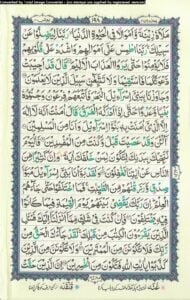 مَلَاَهٗ زِيْنَةً وَّاَمْوَالًا فِي الْحَيٰوةِ الدُّنْيَا ۙ رَبَّنَا لِيُضِلُّوْا عَنْ
سَبِيْلِكَ ۚ رَبَّنَا اطْمِسْ عَلٰٓى اَمْوَالِهِمْ وَاشْدُدْ عَلٰى قُلُوْبِهِمْ
فَلَا يُؤْمِنُوْا حَتّٰى يَرَوُا الْعَذَابَ الْاَلِيْمَ ۝ قَالَ قَدْ اُجِيْبَتْ
دَّعْوَتُكُمَا فَاسْتَقِيْمَا وَلَا تَتَّبِعٰٓنِّ سَبِيْلَ الَّذِيْنَ لَا يَعْلَمُوْنَ ۝
وَجَاوَزْنَا بِبَنِيْٓ اِسْرَآءِيْلَ الْبَحْرَ فَاَتْبَعَهُمْ فِرْعَوْنُ وَجُنُوْدُهٗ
بَغْيًا وَّعَدْوًا ۭ حَتّٰٓى اِذَآ اَدْرَكَهُ الْغَرَقُ ۙ قَالَ اٰمَنْتُ اَنَّهٗ لَآ اِلٰهَ
اِلَّا الَّذِيْٓ اٰمَنَتْ بِهٖ بَنُوْٓا اِسْرَآءِيْلَ وَاَنَا مِنَ الْمُسْلِمِيْنَ ۝
آٰلْـٰٔنَ وَقَدْ عَصَيْتَ قَبْلُ وَكُنْتَ مِنَ الْمُفْسِدِيْنَ ۝ فَالْيَوْمَ نُنَجِّيْكَ
بِبَدَنِكَ لِتَكُوْنَ لِمَنْ خَلْفَكَ اٰيَةً ۭ وَاِنَّ كَثِيْرًا مِّنَ النَّاسِ
عَنْ اٰيٰتِنَا لَغٰفِلُوْنَ ۝ وَلَقَدْ بَوَّاْنَا بَنِيْٓ اِسْرَآءِيْلَ مُبَوَّاَ
صِدْقٍ وَّرَزَقْنٰهُمْ مِّنَ الطَّيِّبٰتِ ۚ فَمَا اخْتَلَفُوْا حَتّٰى جَآءَهُمُ
الْعِلْمُ ۭ اِنَّ رَبَّكَ يَقْضِيْ بَيْنَهُمْ يَوْمَ الْقِيٰمَةِ فِيْمَا كَانُوْا فِيْهِ
يَخْتَلِفُوْنَ ۝ فَاِنْ كُنْتَ فِيْ شَكٍّ مِّمَّآ اَنْزَلْنَآ اِلَيْكَ فَسْـَٔلِ الَّذِيْنَ
يَقْرَءُوْنَ الْكِتٰبَ مِنْ قَبْلِكَ ۚ لَقَدْ جَآءَكَ الْحَقُّ مِنْ رَّبِّكَ
فَلَا تَكُوْنَنَّ مِنَ الْمُمْتَرِيْنَ ۝ وَلَا تَكُوْنَنَّ مِنَ الَّذِيْنَ
كَذَّبُوْا بِاٰيٰتِ اللّٰهِ فَتَكُوْنَ مِنَ الْخٰسِرِيْنَ ۝ اِنَّ الَّذِيْنَ